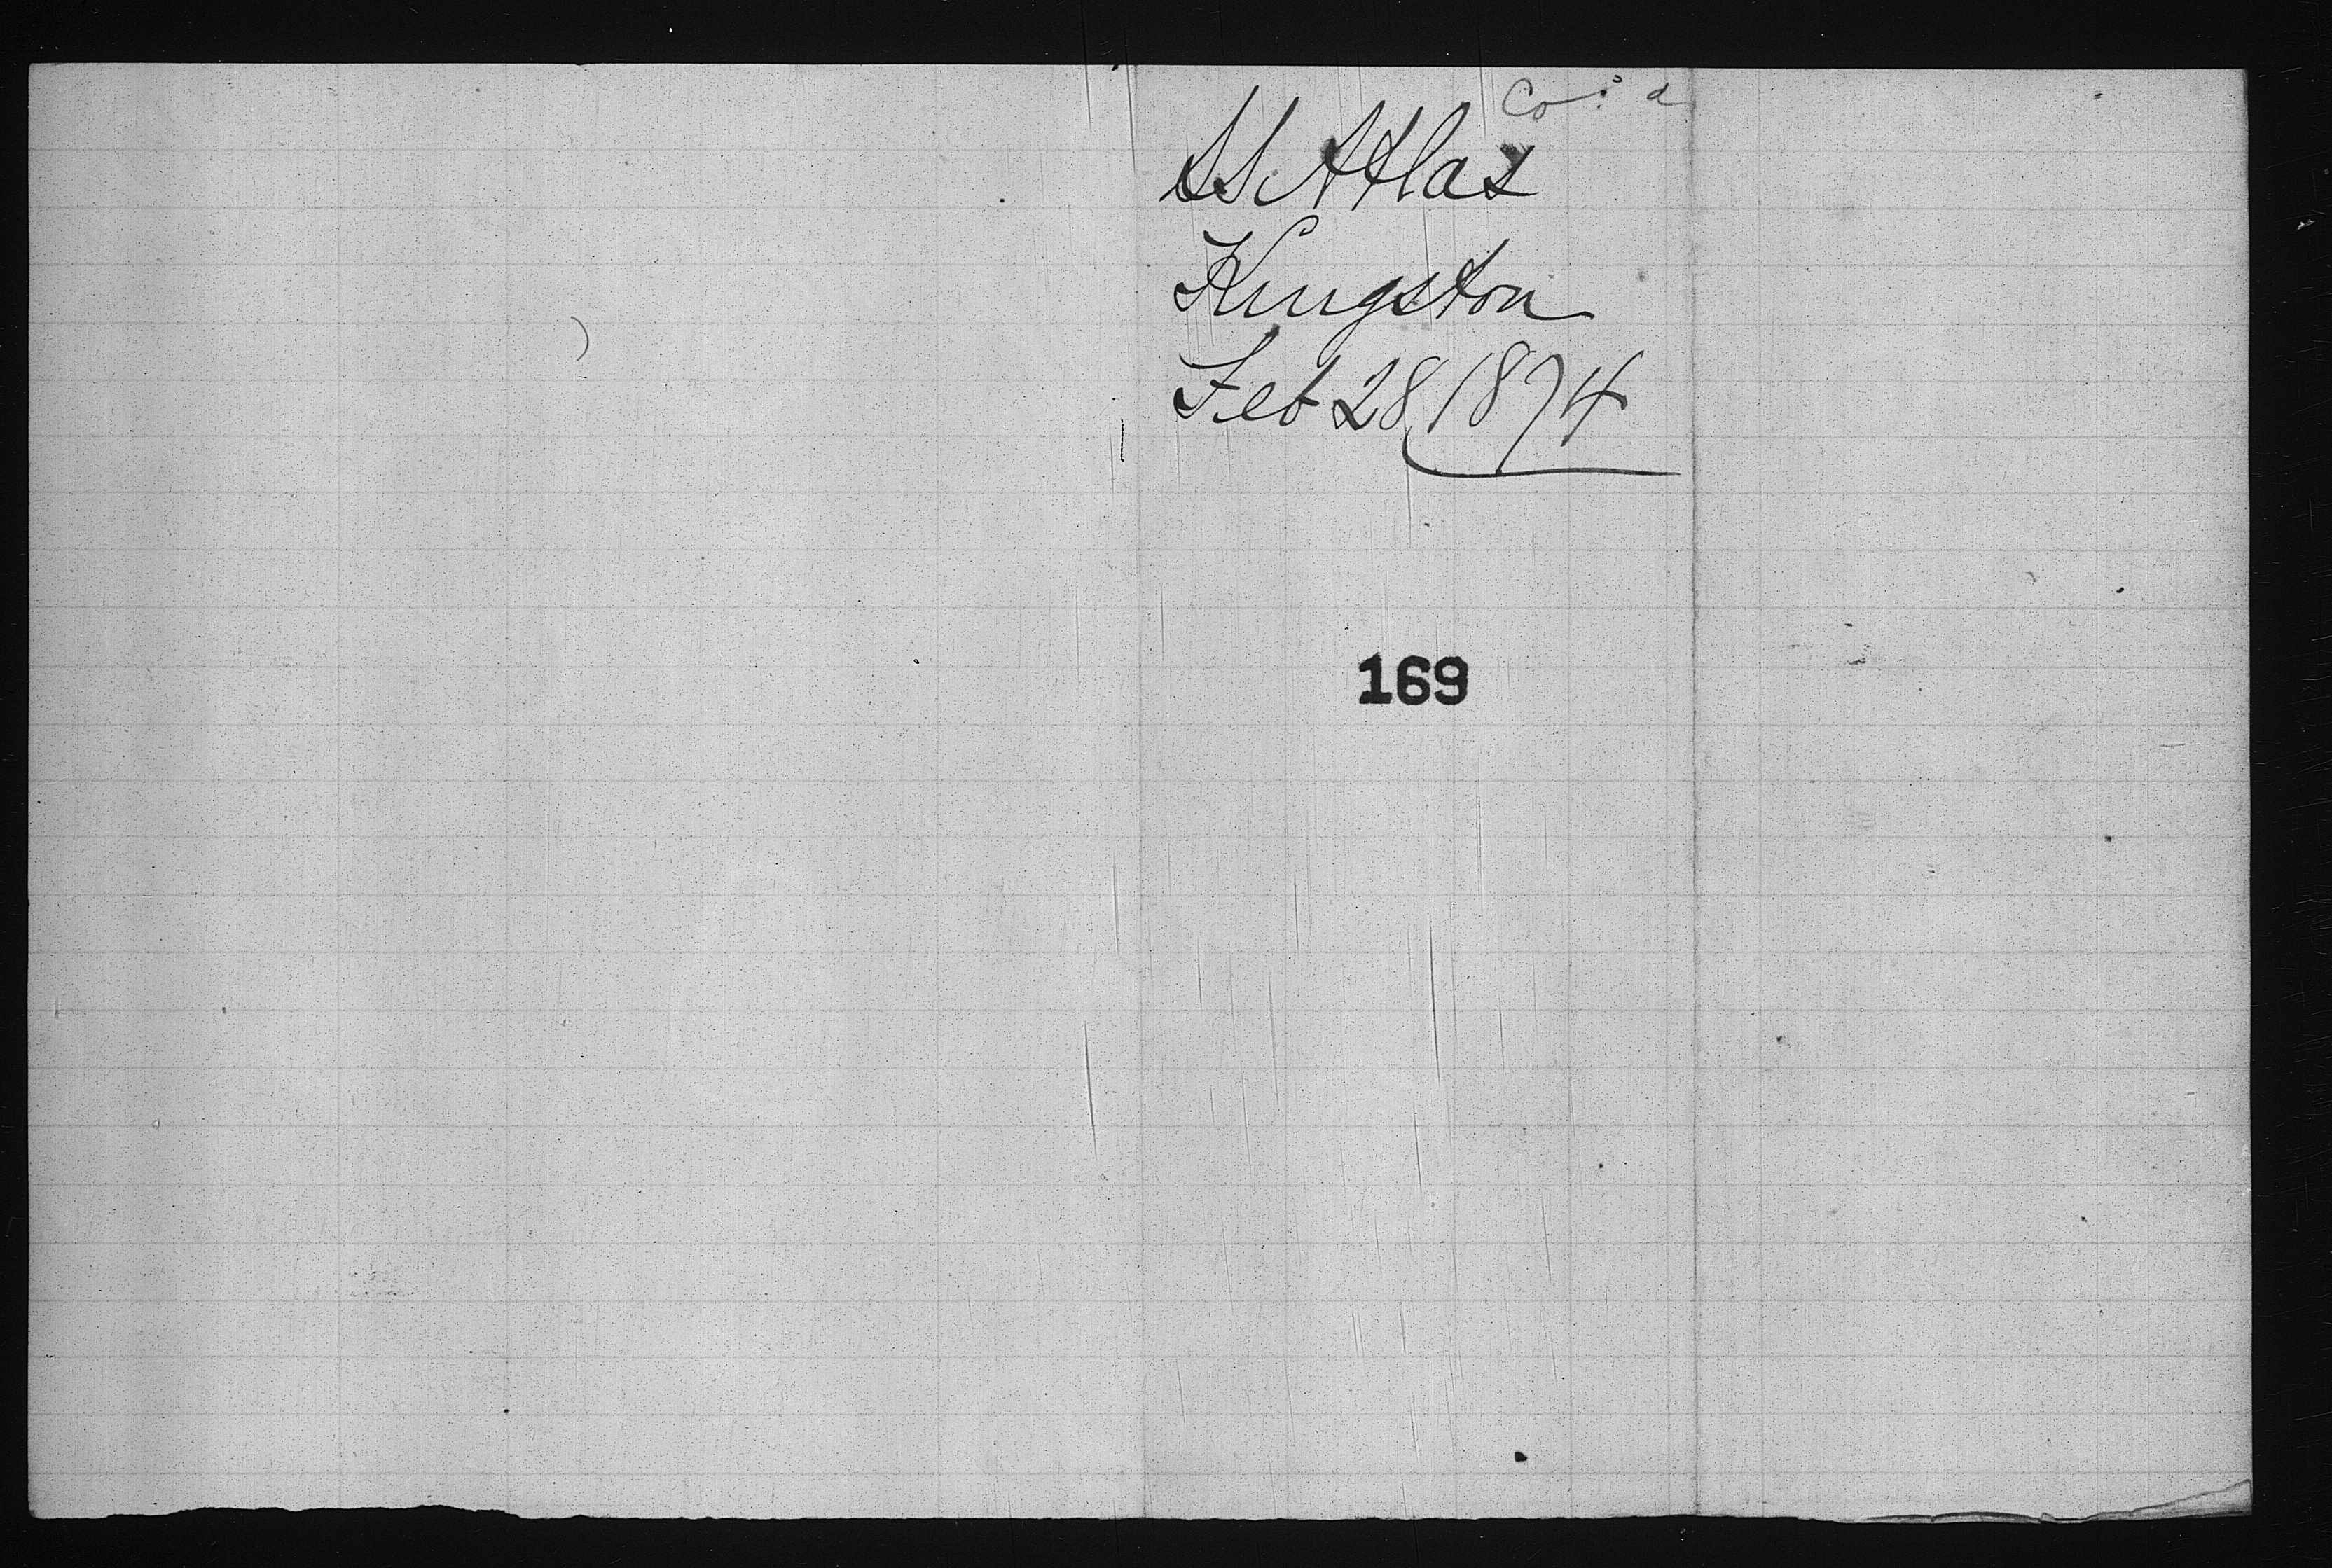 SS Atlas
Kingston
Feb 28 1874
169